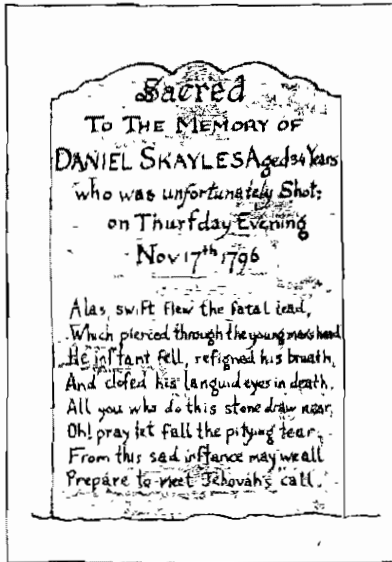 Sacred
To The Memory of
DANIEL SKAYLES Aged 34 Years
who was unfortunately Shot:
on Thurſday Evening
Nov 17th 1796
Alas, swift flew the fatal lead,
Which pierced through the young mans head
He inſtant fell, reſigned his breath,
And cloſed his languid eyes in death.
All you who do this stone draw near,
Oh! pray let fall the pitying tear.
From this sad inſtance may we all
Prepare to meet Jehovah's call.